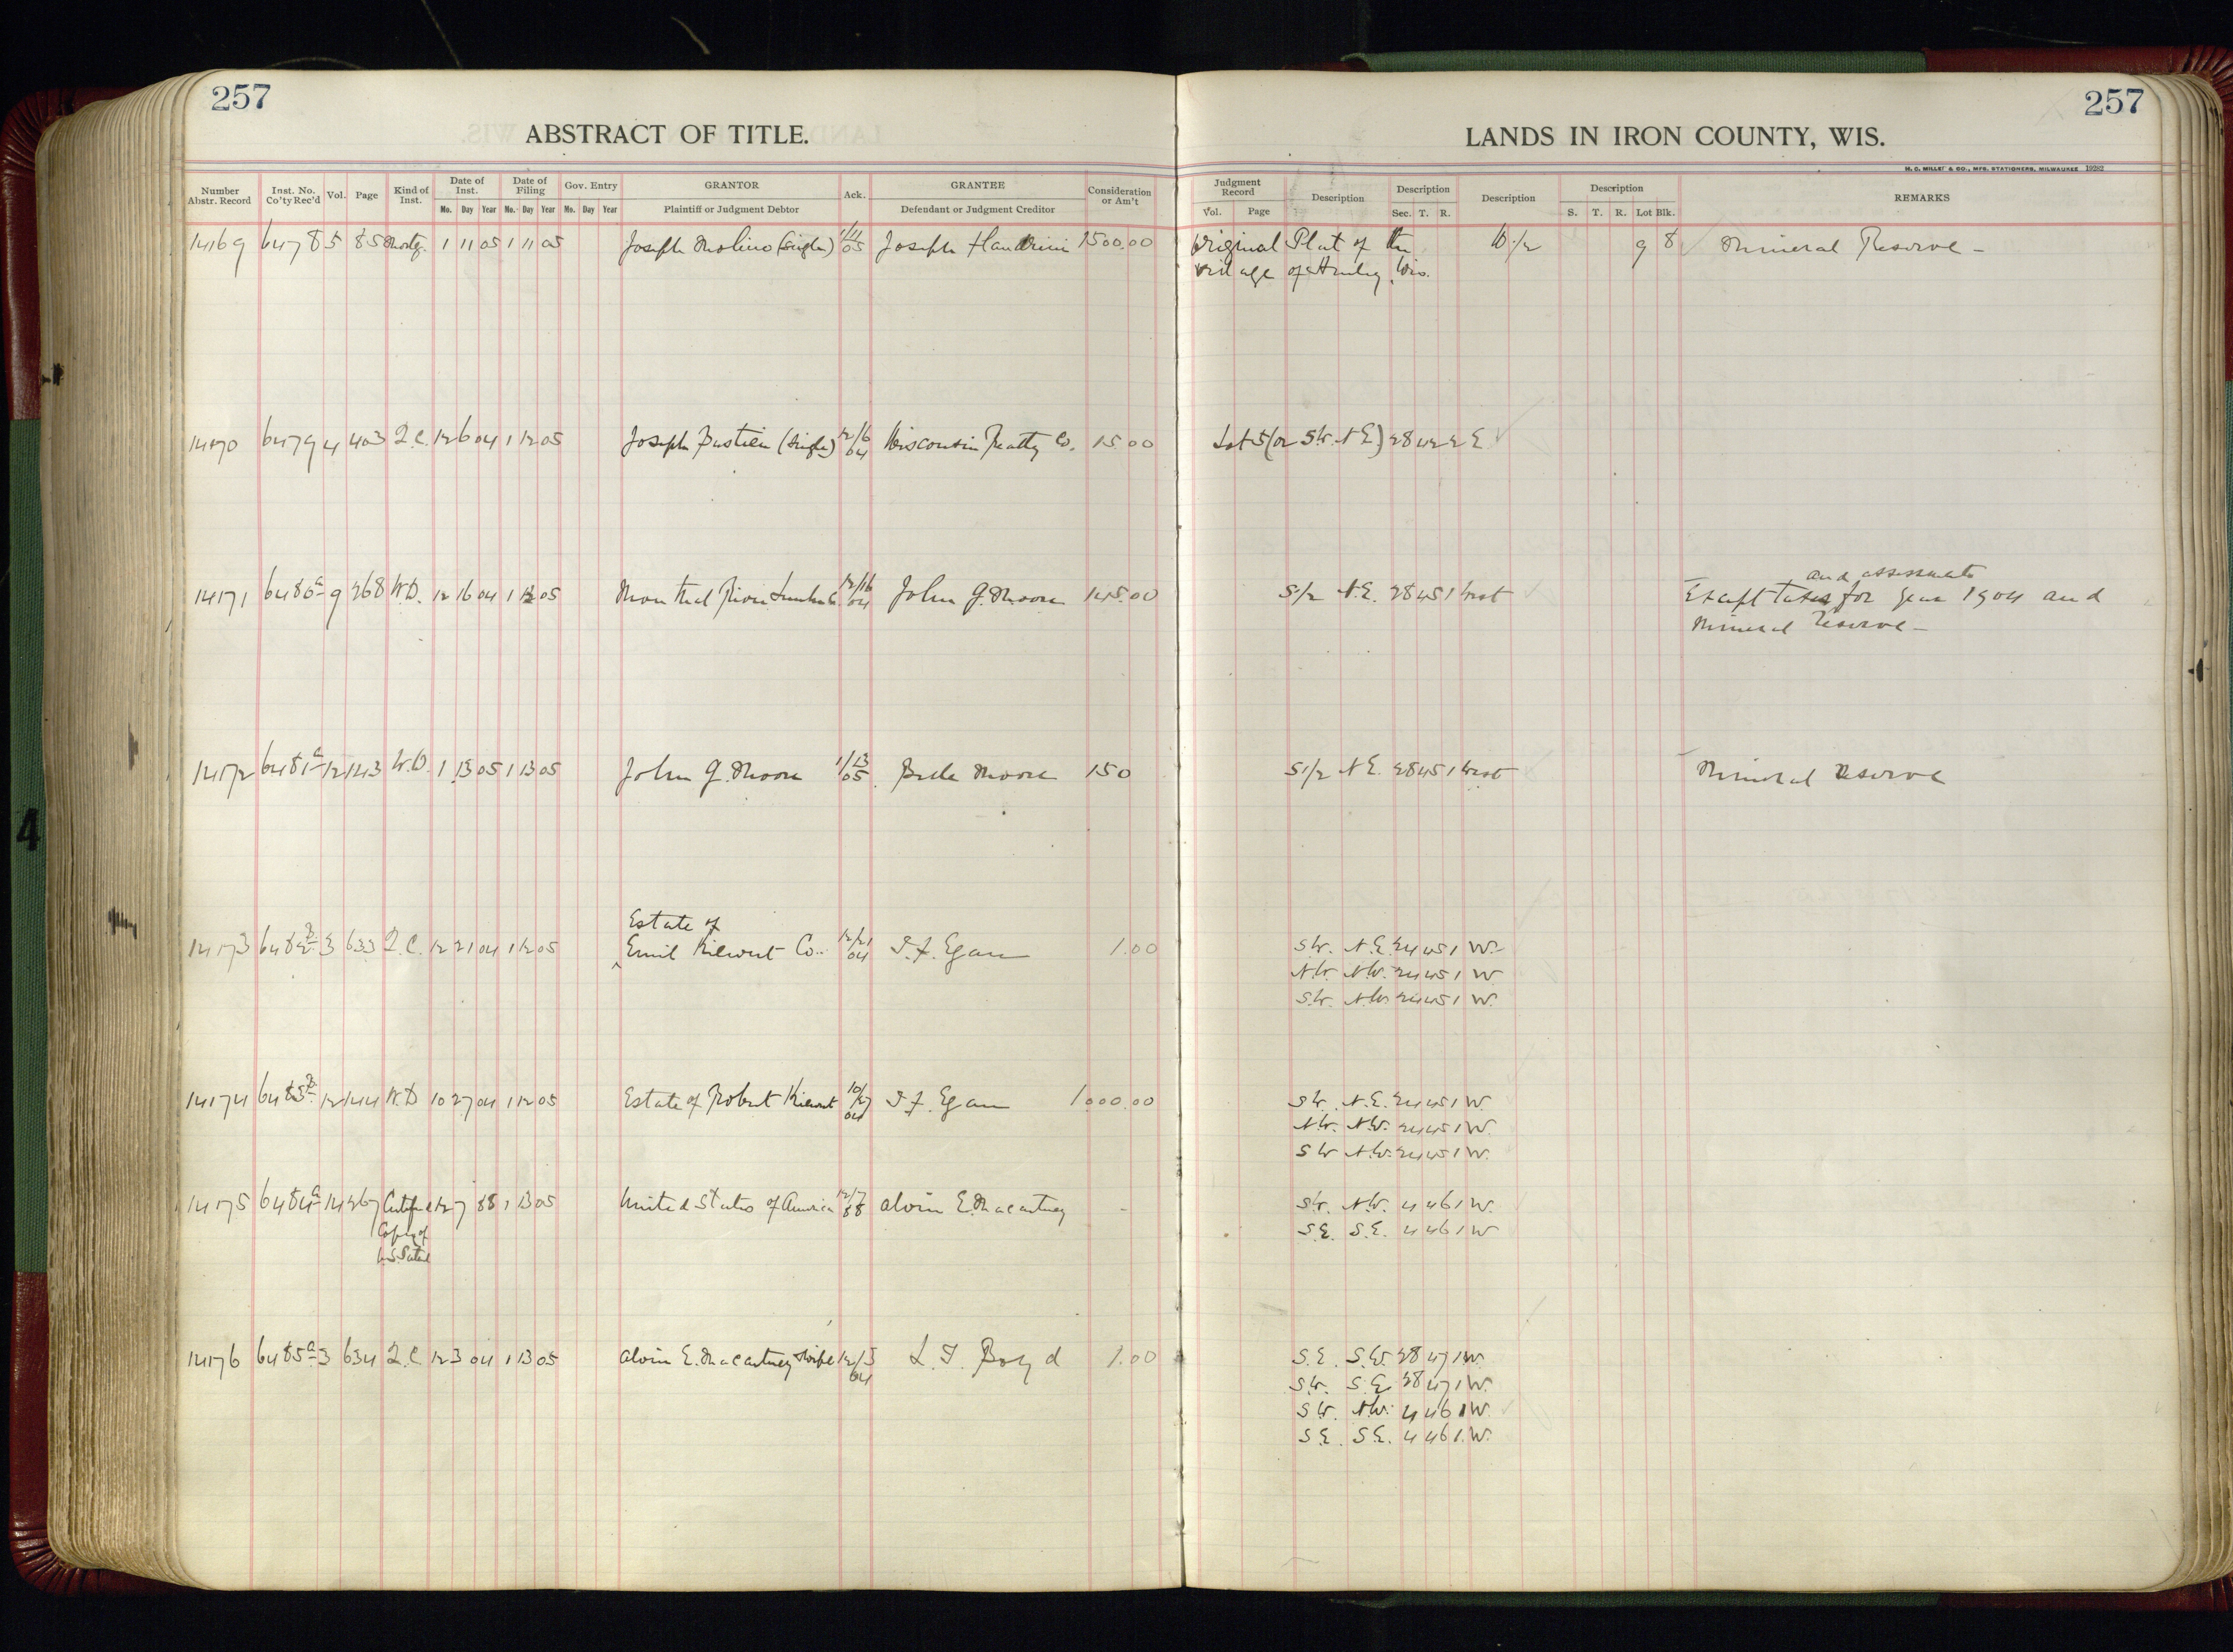 257
257
ABSTRACT OF TITLE.
LANDS IN IRON COUNTY, WIS.
H. C. MILLER & CO., MFG. STATIONERS, MILWAUKEE 19282
Number Abstr. Record Inst. No. Co'ty Rec'd Vol. Page Kind of Inst. Date of Inst. Mo. Day Year Date of Filing Mo. Day Year Gov. Entry Mo. Day Year GRANTOR Plaintiff or Judgment Debtor Ack. GRANTEE Defendant or Judgment Creditor Consideration or Am't
Judgment Record Vol. Page Description Description Sec. T. R. Description Description S. T. R. Lot Blk. REMARKS
14169 6478 5 85 Mortg. 1 11 05 1 11 05 Joseph Molino (Single) 1/11 05 Joseph 1500.00 Original Plat of the W. 1/2 9 8 Mineral Reserve -
Village of Hurley, Wis.
14170 6479 4 403 Q.C. 12 6 04 1 12 05 Joseph Bastien (Single) 12/6 04 Wisconsin Realty Co. 15.00 Lot 5 (or S.W. N.E.) 28 42 2 E
and assessments
14171 6480 a 9 268 W.D. 12 16 04 1 12 05 Montreal River Lumber Co. 12/16 04 John G. Moore 145.00 S 1/2 N.E. 28 45 1 West Except taxes for year 1904 and
Mineral Reserve -
14172 6481 a 12 143 W.D. 1 13 05 1 13 05 John G. Moore 1/13 05 Moore 150 S 1/2 N.E. 28 45 1 West Mineral Reserve
Estate of
14173 6482 3 633 Q.C. 12 21 04 1 12 05 Emil Co. 12/21 04 T. F. Egan 1.00 S.W. N.E. 24 45 1 W.
N.W. N.W. 24 45 1 W
S.W. N.W. 24 45 1 W.
14174 6483 12 144 W.D 10 27 04 1 12 05 Estate of Robert 10/27 04 T. F. Egan 1000.00 S.W. N.E. 24 45 1 W.
N.W. N.W. 24 45 1 W.
S.W N.W. 24 45 1 W.
14175 6484 a 14 267 Certified 12 7 88 1 13 05 United States of America 12/7 88 Alvin E. Macartney - S.W. N.W. 4 46 1 W.
Copy of S.E. S.E. 4 46 1 W
U.S. Patent
14176 6485 a 3 634 Q.C 12 3 04 1 13 05 Alvin E. Macartney & wife 12/3 04 L. T. Boyd 1.00 S.E. S.W. 28 47 1 W.
S.W. S.E. 28 47 1 W.
S.W. N.W. 4 46 1 W.
S.E. S.E. 4 46 1 W.
4